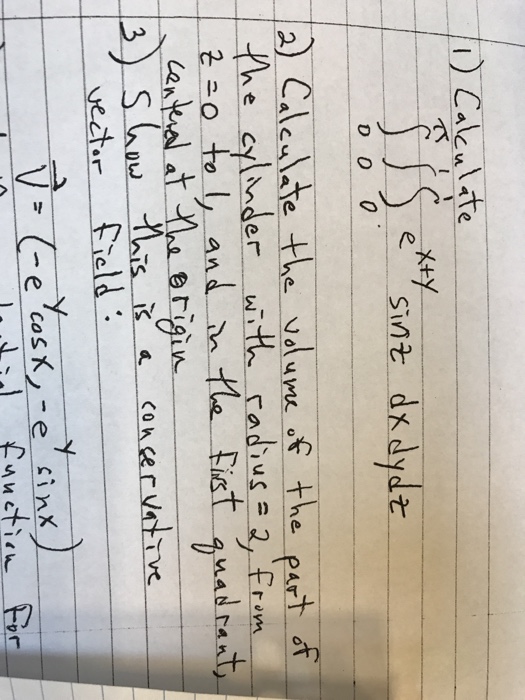 1) Calculate
π 1 1
∫∫∫ e^(x+y) sinz dxdydz
0 0 0
2) Calculate the volume of the part of
the cylinder with radius = 2, from
z=0 to 1, and in the first quadrant,
centered at the origin
3) Show this is a conservative
vector field:
V⃗ = (-e^y cosx, -e^y sinx)
function for